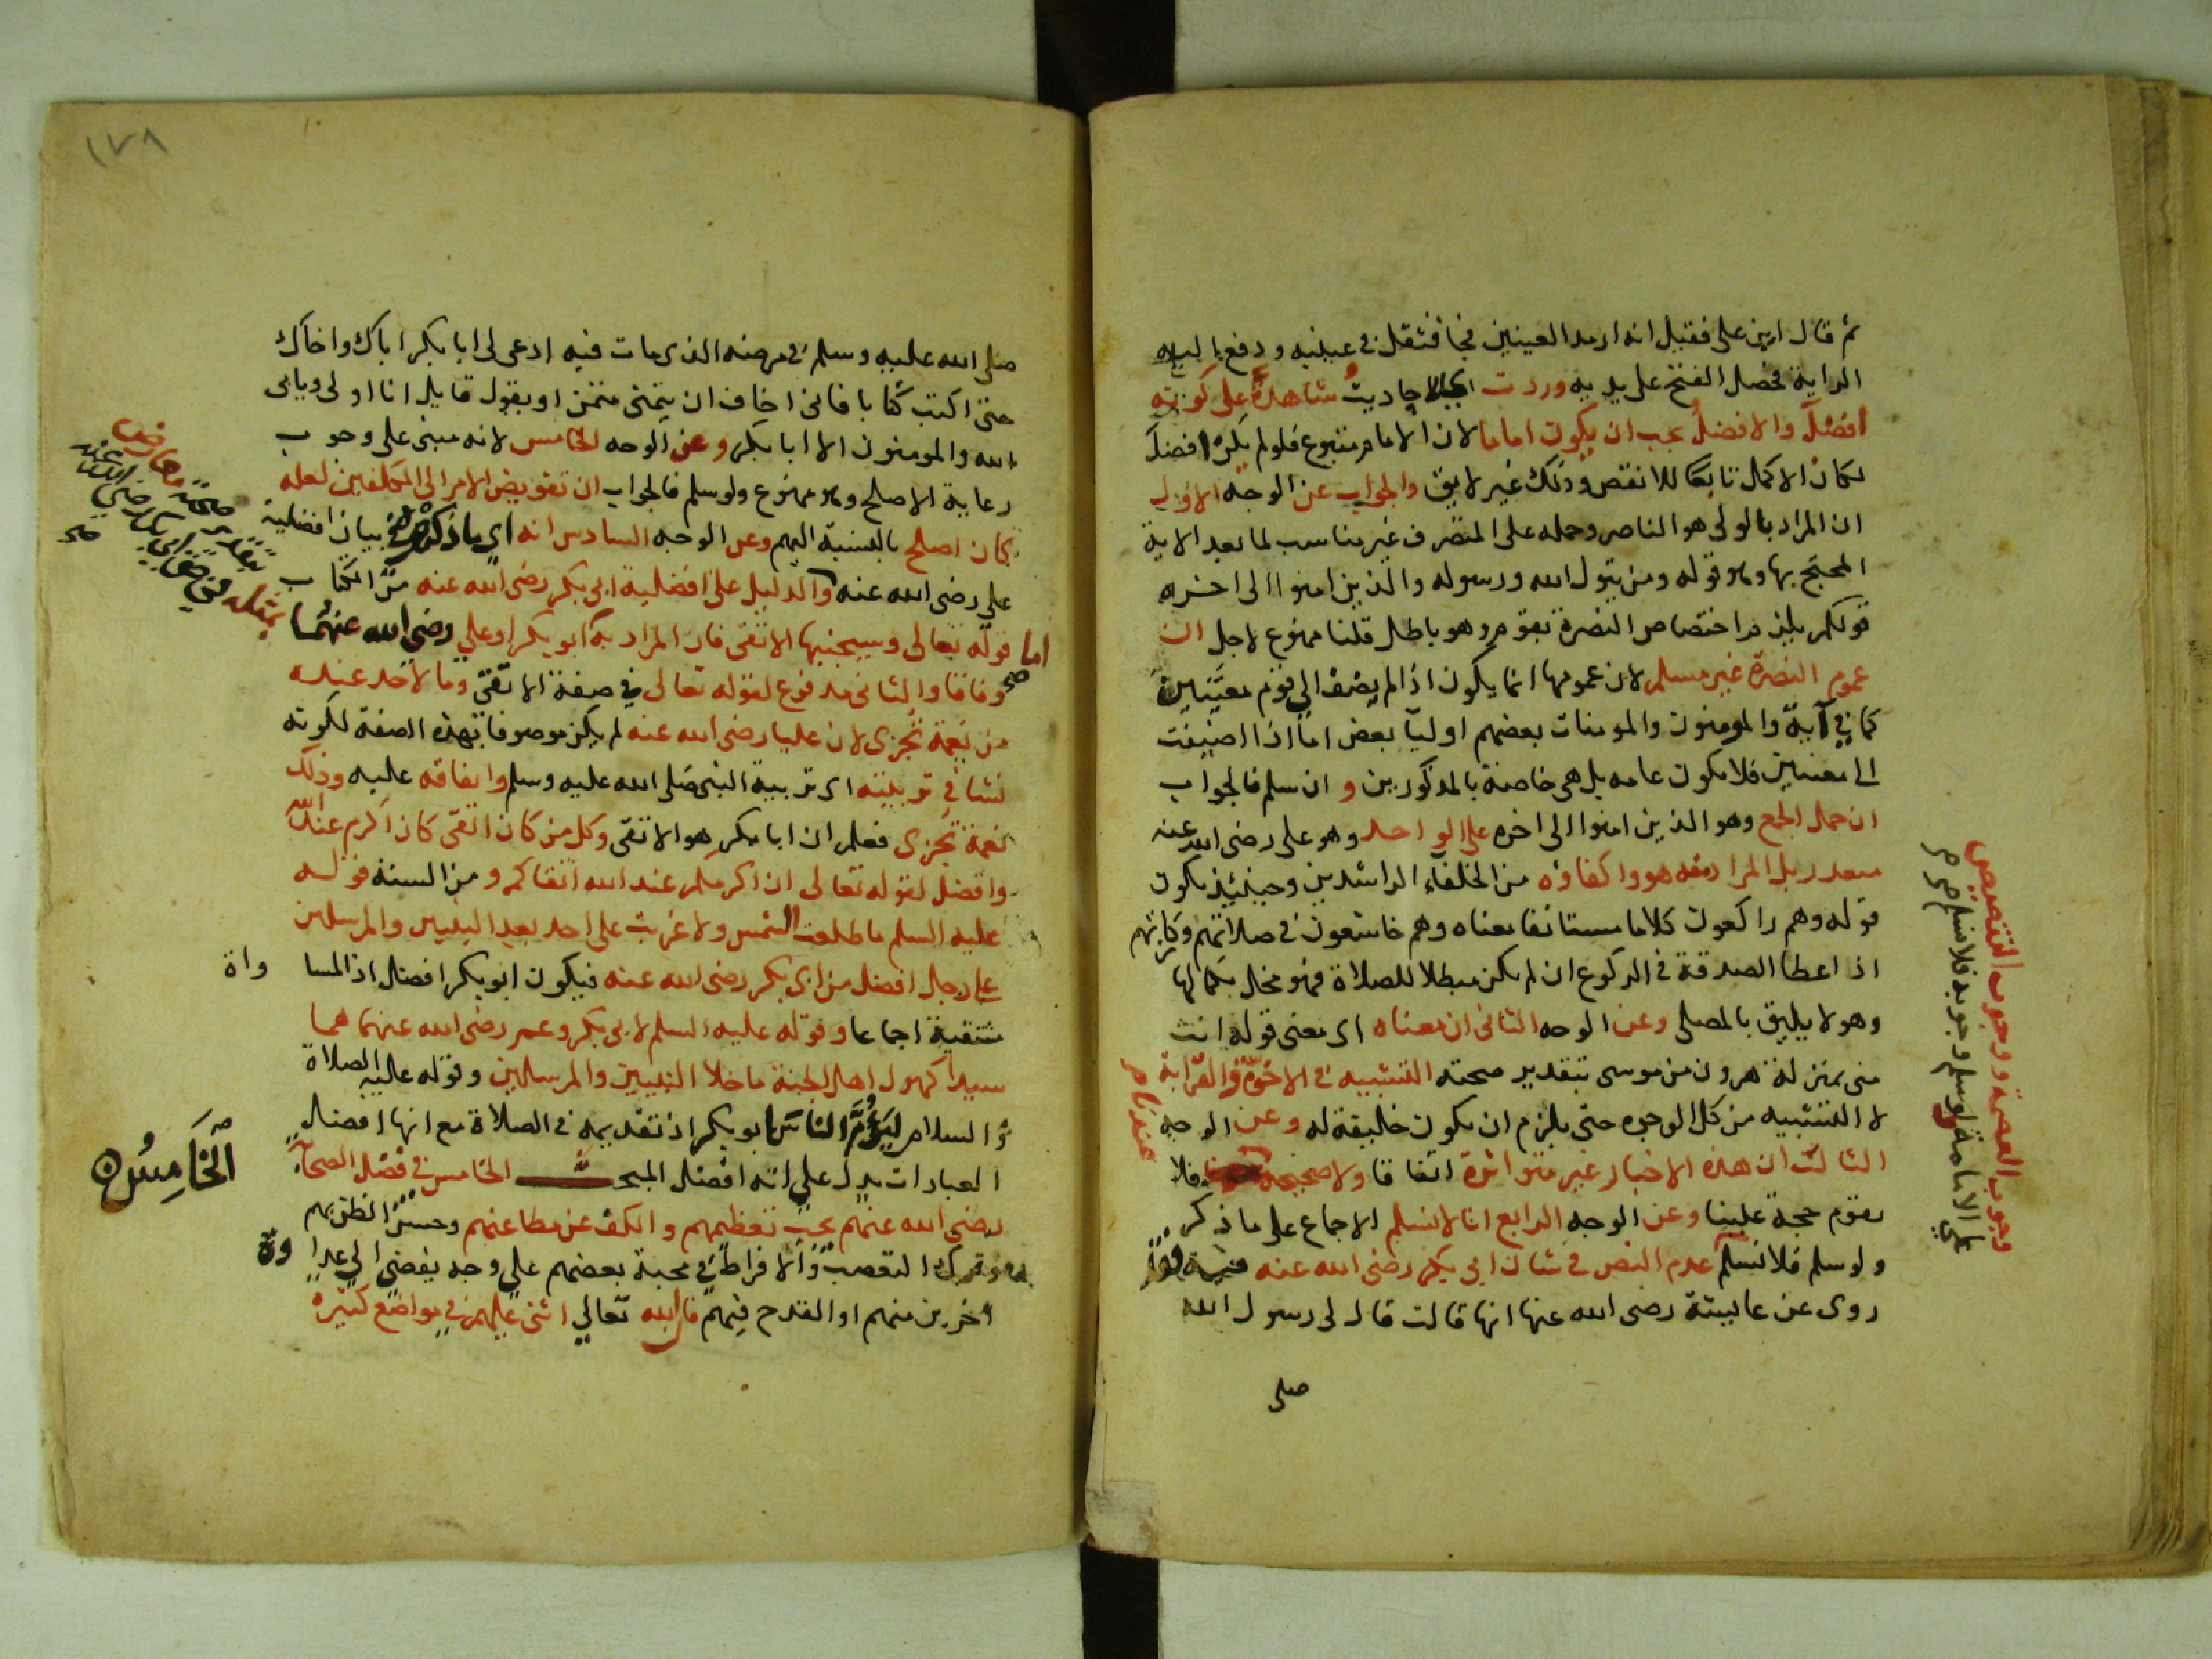 ثم قال اين على فقيل انه ارمد العينين فجا فتفل في عينيه ودفع اليه
الراية فحصل الفتح على يديه وردت احاديث شاهدة على كونه
افضل والافضل يجب ان يكون اماما لان الامام متبوع فلو لم يكن افضل
لكان الاكمل تابعا للانقص وذلك غير لايق والجواب عن الوجه الاول
ان المراد بالولى هو الناصر وحمله على المتصرف غير مناسب لما بعد الاية
المحتج بها وهو قوله ومن يتول الله ورسوله والذين امنوا الى اخره
قولكم يلزم اختصاص النصرة بقوم وهو باطل قلنا ممنوع لاجل ان
عموم النصرة غير مسلم لان عمومها انما يكون اذا لم يضف الى قوم معينين
كما في آية والمومنون والمومنات بعضهم اوليا بعض اما اذا اضيفت
الى معينين فلا يكون عامه بل هى خاصة بالمذكورين وان سلم فالجواب
ان حمل الجمع وهو الذين امنوا الى اخره على الواحد وهو على رضى الله عنه
متعذر بل المراد منه هو واكفاؤه من الخلفاء الراشدين وحينئذ يكون
قوله وهم راكعون كلاما مستانفا معناه وهم خاشعون في صلاتهم وزكاتهم
اذ اعطا الصدقة في الركوع ان لم يكن مبطلا للصلاة فهو مخل بكمالها
وهو لا يليق بالمصلى وعن الوجه الثانى ان معناه اى معنى قوله انت
منى بمنزلة هرون من موسى بتقدير صحته التشبيه في الاخوة والقرابة
لا التشبيه من كل الوجوه حتى يلزم ان يكون خليفة له وعن الوجه
الثالث ان هذه الاخبار غير متواترة اتفاقا ولا صحيحة فلا
تقوم حجة علينا وعن الوجه الرابع انا لا نسلم الاجماع على ما ذكر
ولو سلم فلا نسلم عدم النص في شان ابى بكر رضى الله عنه
روى عن عايشة رضى الله عنها انها قالت قال لى رسول الله
صلى
وجوب العصمة ووجوب التنصيص
على الامامة ولو سلم وجوبه فلا نسلم
عندنا
١٧٨
صلى الله عليه وسلم في مرضه الذى مات فيه ادعى لى ابا بكر اباك واخاك
حتى اكتب كتابا فانى اخاف ان يتمنى متمن او يقول قايل انا اولى ويابى
الله والمومنون الا ابا بكر وعن الوجه الخامس لانه مبنى على وجوب
رعاية الاصلح وهو ممنوع ولو سلم فالجواب ان تفويض الامر الى المكلفين لعله
كان اصلح بالنسبة اليهم وعن الوجه السادس انه اى ما ذكرتم في بيان افضلية
على رضى الله عنه والدليل على افضلية ابى بكر رضى الله عنه من الكتاب
اما قوله تعالى وسيجنبها الاتقى فان المراد به ابو بكر او على رضى الله عنهما
وفاقا والثانى مدفوع لقوله تعالى في صفة الاتقى وما لاحد عنده
من نعمة تجزى لان عليا رضى الله عنه لم يكن موصوفا بهذه الصفة لكونه
نشا في تربيته اى تربية النبى صلى الله عليه وسلم وانفاقه عليه وذلك
نعمة تجزى فعلم ان ابا بكر هو الاتقى وكل من كان اتقى كان اكرم عند الله
وافضل لقوله تعالى ان اكرمكم عند الله اتقاكم ومن السنة قوله
عليه السلم ما طلعت الشمس ولا غربت على احد بعد النبيين والمرسلين
على رجل افضل من ابى بكر رضى الله عنه فيكون ابو بكر افضل اذ المساواة
منتفية اجماعا وقوله عليه السلم لابى بكر وعمر رضى الله عنهما هما
سيدا كهول اهل الجنة ما خلا النبيين والمرسلين وقوله عليه الصلاة
والسلام ليؤم الناس ابو بكر اذ تقديمه في الصلاة مع انها افضل
العبادات يدل على انه افضل المبحث الخامس في فضل الصحابة
رضى الله عنهم يجب تعظيمهم والكف عن مطاعنهم وحسن الظن بهم
وترك التعصب والافراط في محبة بعضهم على وجه يفضى الى عداوة
اخرين منهم او القدح فيهم فان الله تعالى اثنى عليهم في مواضع كثيرة
معارض بتقدير صحته
بمثله في حق ابى بكر رضى الله عنه
صح
صح
الخامس